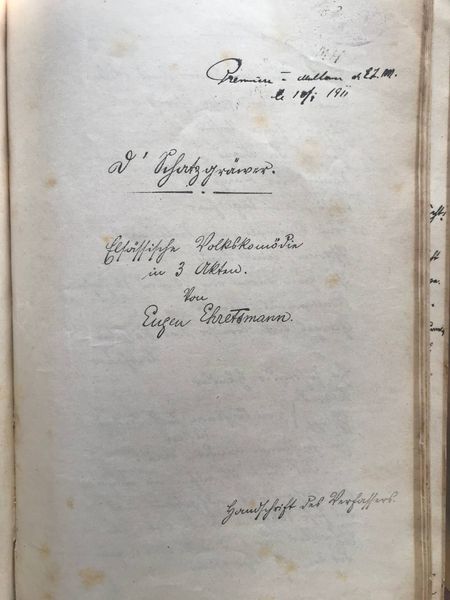 Première - Mulhouse
le 1911
D' Schatzgräwer.
Elsässische Volkskomödie
in 3 Akten.
Von
Eugen Ehretsmann.
Handschrift des Verfassers.